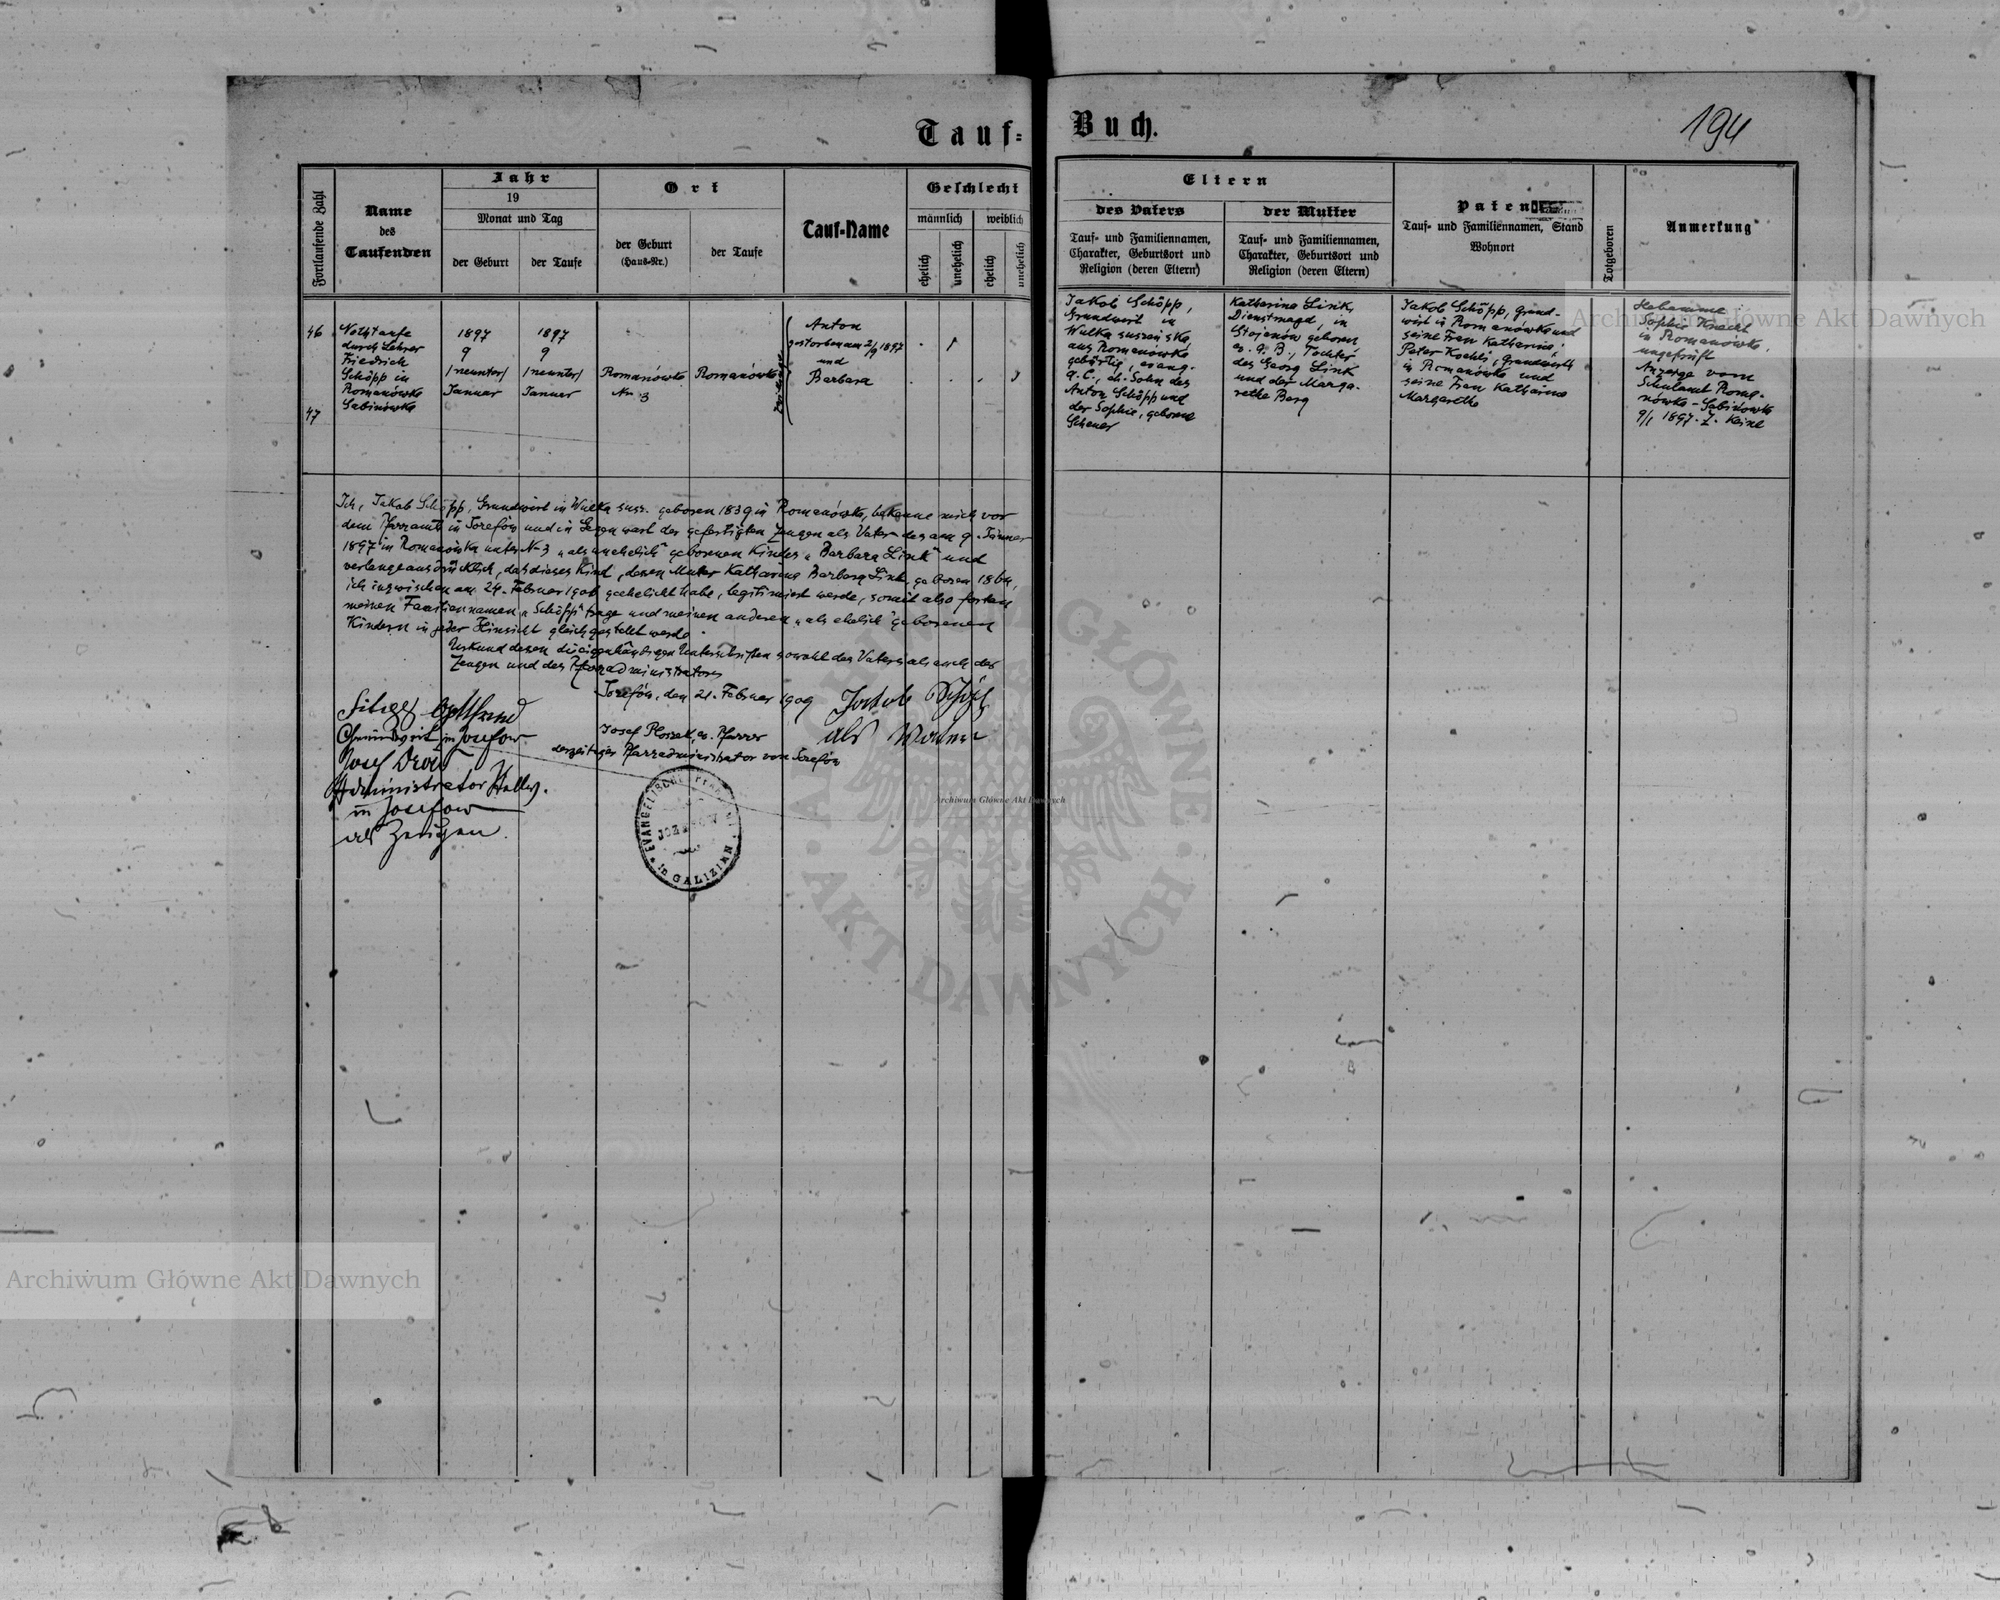 Tauf-Buch.
194
Fortlaufende Zahl
Name
des
Taufenden
Jahr
19
Monat und Tag
der Geburt
der Taufe
Ort
der Geburt
(Haus-Nr.)
der Taufe
Tauf-Name
Geschlecht
männlich
weiblich
ehelich
unehelich
ehelich
unehelich
Eltern
des Vaters
Tauf- und Familiennamen,
Charakter, Geburtsort und
Religion (deren Eltern)
der Mutter
Tauf- und Familiennamen,
Charakter, Geburtsort und
Religion (deren Eltern)
Paten
Tauf- und Familiennamen, Stand
Wohnort
Totgeboren
Anmerkung
46
47
Nothtaufe
durch Lehrer
Friedrich
Schöpp in
Romanówka
Sabinówka
1897
9
/neunter/
Januar
1897
9
/neunter/
Januar
Romanówka
Nr 3
Romanówka
Zwillinge
Anton
gestorben am 2/9 1897
und
Barbara
Jakob Schöpp,
Grundwirt in
Wulka suszeńska,
aus Romanówka
gebürtig, evang.
A. C., eh. Sohn des
Anton Schöpp und
der Sophie, geborene
Scheuer
Katharina Link,
Dienstmagd, in
Stojanów geboren
ev. A. B., Tochter
des Georg Link
und der Marga-
rethe Berg
Jakob Schöpp, Grund-
wirt in Romanówka und
seine Frau Katharina;
Peter Koehli, Grundwirth
in Romanówka und
seine Frau Katharina
Margarethe
Hebamme
Sophie Knecht
in Romanówka,
ungeprüft
Anzege vom
Schulamt Roma-
nówka-Sabinówka
9/1 1897. Z. Keine
Ich, Jakob Schöpp, Grundwirt in Wulka susz. geboren 1839 in Romanówka, bekenne mich vor
dem Pfarramte in Josefów und in Gegenwart der gefertigten Zeugen als Vater des am 9. Jänner
1897 in Romanówka unter Nr 3 „als unehelich" geborenen Kindes „Barbara Link" und
verlange ausdrücklich, daß dieses Kind, dessen Mutter Katharina Barbara Link, geboren 1864,
ich inzwischen am 24. Februar 1906 geehelicht habe, legitimiert werde, somit also fortan
meinen Familiennamen „Schöpp" trage und meinen anderen „als ehelich" geborenen
Kindern in jeder Hinsicht gleichgestellt werde.
Urkund dessen die eigenhändigen Unterschriften sowohl des Vaters als auch der
Zeugen und des Pfarradministrators
Josefów, den 21. Februar 1909
Jakob Schöpp
als Vater
Josef Ploszek, ev. Pfarrer
derzeitiger Pfarradministrator von Josefów
Gottfried
Grundwirt in Josefow
Josef
Administrator
in Josefow
als Zeugen.
EVANGELISCHE
JOZEFOW
in GALIZIEN
Archiwum Główne Akt Dawnych
Archiwum Główne Akt Dawnych
Archiwum Główne Akt Dawnych
ARCHIWUM GŁÓWNE · AKT DAWNYCH ·